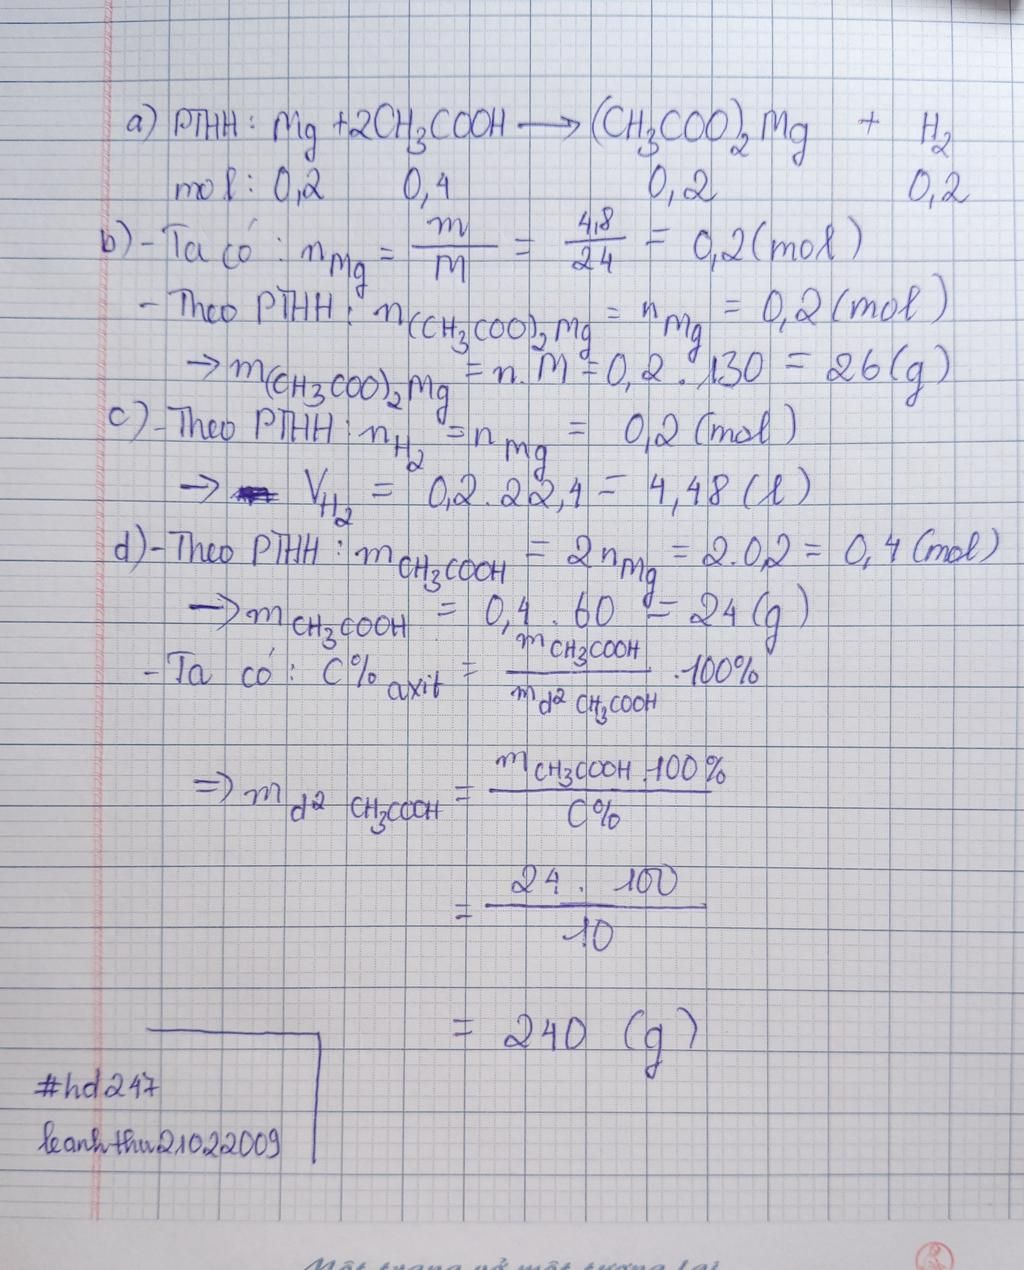 a) PTHH: Mg + 2CH₃COOH → (CH₃COO)₂Mg + H₂
mol: 0,2 0,4 0,2 0,2
b) - Ta có: nMg = m/M = 4,8/24 = 0,2 (mol)
- Theo PTHH: n(CH₃COO)₂Mg = nMg = 0,2 (mol)
→ m(CH₃COO)₂Mg = n.M = 0,2 . 130 = 26 (g)
c) - Theo PTHH: nH₂ = nMg = 0,2 (mol)
→ VH₂ = 0,2.22,4 = 4,48 (l)
d) - Theo PTHH: mCH₃COOH = 2nMg = 2.0,2 = 0,4 (mol)
→ mCH₃COOH = 0,4 . 60 = 24 (g)
- Ta có: C% axit = mCH₃COOH / md² CH₃COOH .100%
=> md² CH₃COOH = mCH₃COOH .100% / C%
= 24 . 100 / 10
= 240 (g)
#hd247
leanhthu21022009
Một trang vở một tương lai